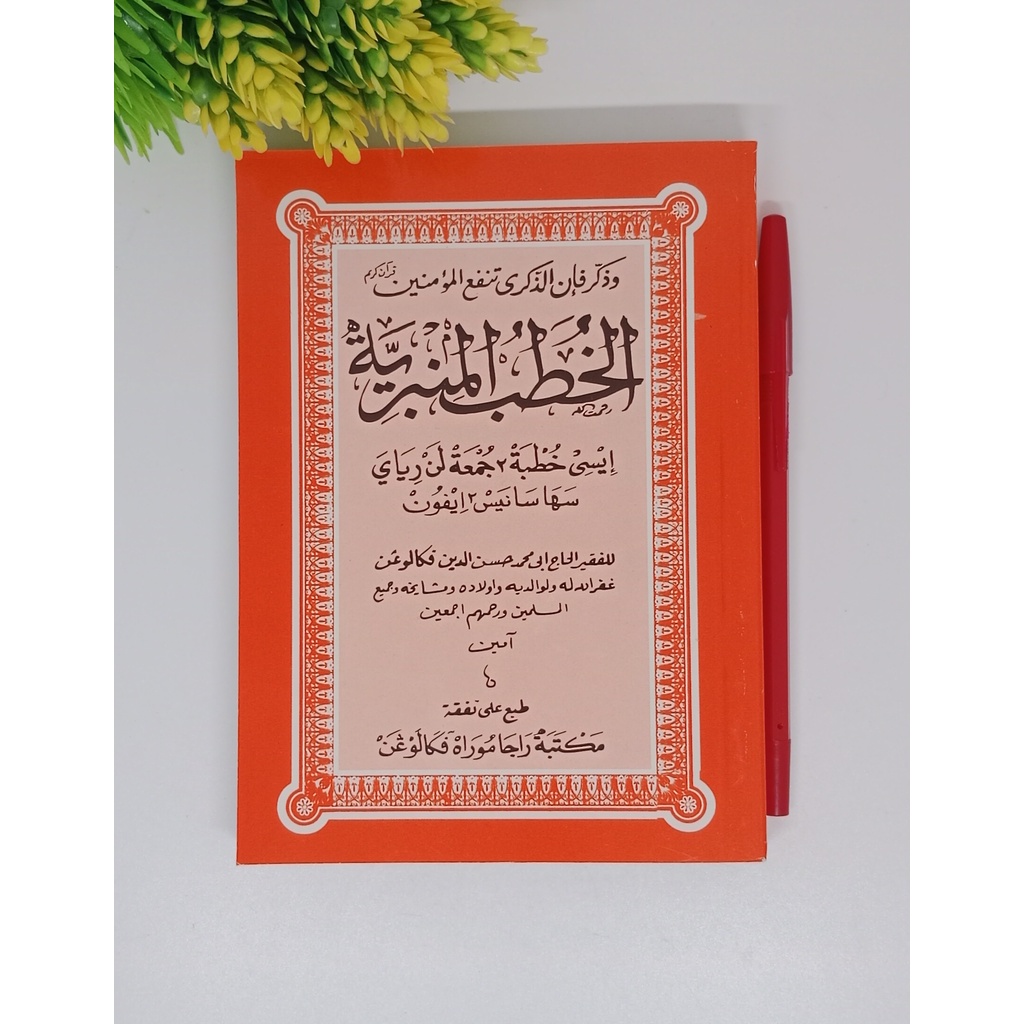 وذكر فإن الذكرى تنفع المؤمنين قرآن كريم
الخُطَبُ المِنْبَرِيَّة
إيسى خُطْبَة٢ جُمْعَة لَنْ رِيَايَ
سَهَا سَانَيس٢ إيڤُونْ
للفقير الحاج ابى محمد حسن الدين ڤكالوڠن
غفر الله له ولوالديه واولاده ومشايخه وجميع
المسلمين ورحمهم اجمعين
آمين
طبع على نفقة
مَكْتَبَة رَاجَا مُورَاه ڤكَالَوْڠَنْ